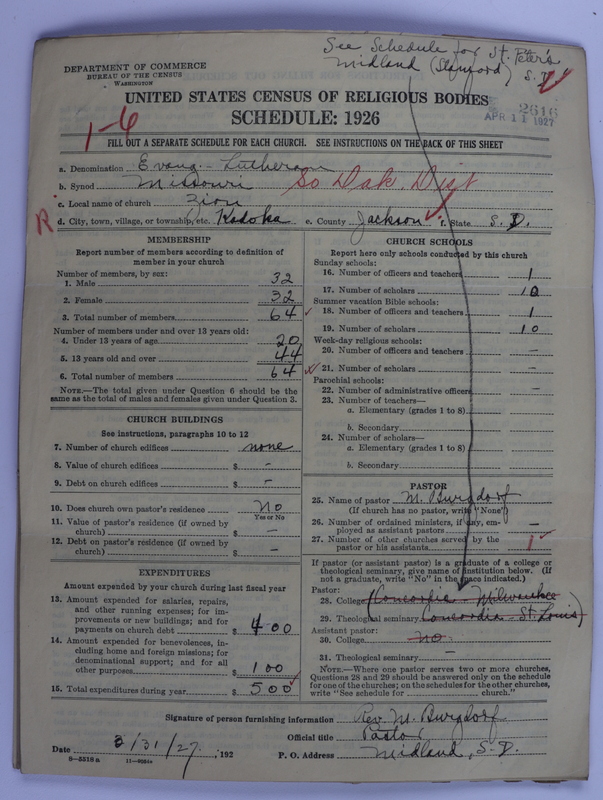 See Schedule for St. Peter's
Midland (Stanford) S. D.
DEPARTMENT OF COMMERCE
BUREAU OF THE CENSUS
WASHINGTON
UNITED STATES CENSUS OF RELIGIOUS BODIES
SCHEDULE: 1926
2616
APR 11 1927
1-6
FILL OUT A SEPARATE SCHEDULE FOR EACH CHURCH. SEE INSTRUCTIONS ON THE BACK OF THIS SHEET
a. Denomination Evang. Lutheran
b. Synod Missouri So Dak. Dist
c. Local name of church Zion
R d. City, town, village, or township, etc. Kadoka e. County Jackson f. State S. D.
MEMBERSHIP
Report number of members according to definition of
member in your church
Number of members, by sex:
1. Male 32
2. Female 32
3. Total number of members 64
Number of members under and over 13 years old:
4. Under 13 years of age 20
5. 13 years old and over 44
6. Total number of members 64
NOTE.—The total given under Question 6 should be the
same as the total of males and females given under Question 3.
CHURCH BUILDINGS
See instructions, paragraphs 10 to 12
7. Number of church edifices none
8. Value of church edifices $ -
9. Debt on church edifices $ -
10. Does church own pastor's residence No
Yes or No
11. Value of pastor's residence (if owned by
church) $ -
12. Debt on pastor's residence (if owned by
church) $ -
EXPENDITURES
Amount expended by your church during last fiscal year
13. Amount expended for salaries, repairs,
and other running expenses; for im-
provements or new buildings; and for
payments on church debt $ 400
14. Amount expended for benevolences, in-
cluding home and foreign missions; for
denominational support; and for all
other purposes $ 100
15. Total expenditures during year $ 500
CHURCH SCHOOLS
Report here only schools conducted by this church
Sunday schools:
16. Number of officers and teachers 1
17. Number of scholars 10
Summer vacation Bible schools:
18. Number of officers and teachers 1
19. Number of scholars 10
Week-day religious schools:
20. Number of officers and teachers -
21. Number of scholars -
Parochial schools:
22. Number of administrative officers -
23. Number of teachers—
a. Elementary (grades 1 to 8)
b. Secondary
24. Number of scholars—
a. Elementary (grades 1 to 8)
b. Secondary
PASTOR
25. Name of pastor M. Burgdorf
(If church has no pastor, write "None")
26. Number of ordained ministers, if any, em-
ployed as assistant pastors -
27. Number of other churches served by the
pastor or his assistants 1
If pastor (or assistant pastor) is a graduate of a college or
theological seminary, give name of institution below. (If
not a graduate, write "No" in the space indicated.)
Pastor:
28. College (Concordia - Milwaukee
29. Theological seminary Concordia - St. Louis)
Assistant pastor:
30. College no
31. Theological seminary -
NOTE.—Where one pastor serves two or more churches,
Questions 28 and 29 should be answered only on the schedule
for one of the churches; on the schedules for the other churches,
write "See schedule for church."
Signature of person furnishing information Rev. M. Burgdorf
Official title Pastor
Date 3/31/27, 192 P. O. Address Midland, S. D.
8—5518 a